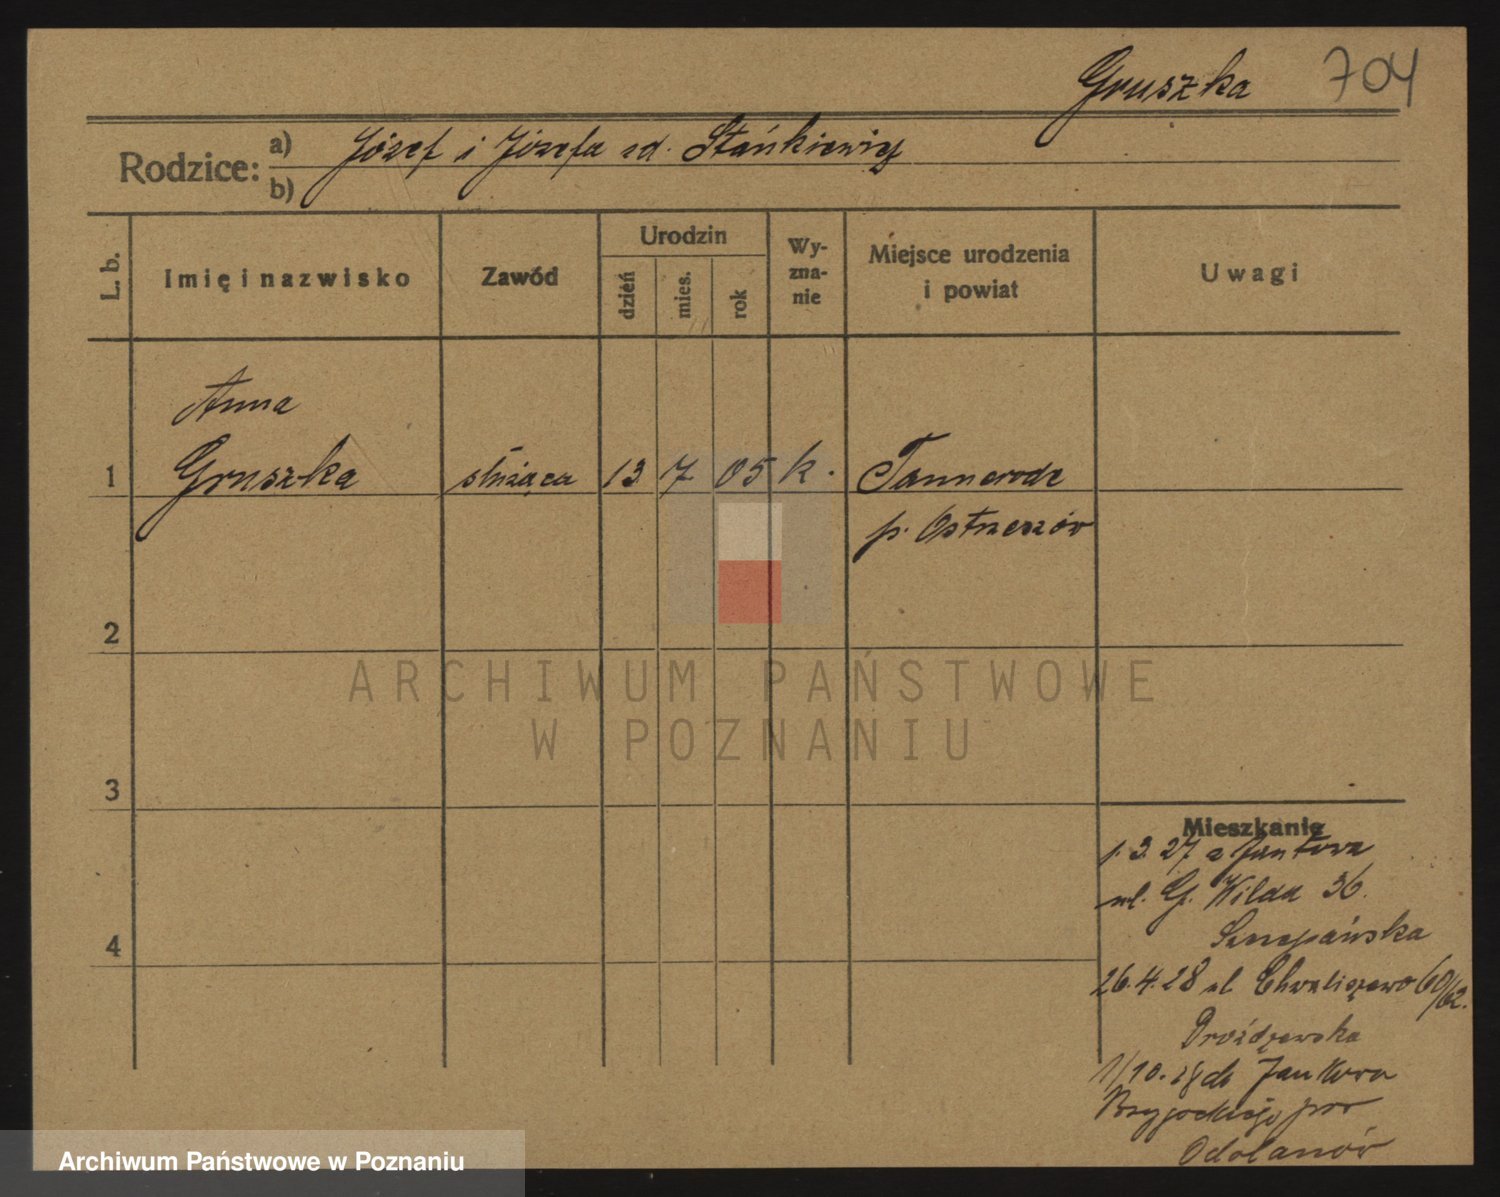 Gruszka 704
Rodzice: a) Józef i Józefa zd. Stańkiewicz
b)
L. b.
Imię i nazwisko
Zawód
Urodzin
dzień
mies.
rok
Wy-
zna-
nie
Miejsce urodzenia
i powiat
Uwagi
Anna
1 Gruszka służąca 13 7 05 k. Tannerode
p. Ostrzeszów
2
ARCHIWUM PAŃSTWOWE
W POZNANIU
3
Mieszkanie
1.3.27 z Jankowa
ul. G. Wilda 36.
Szczepańska
4
26.4.28 ul. Chwaliszewo 60/62.
Droźdzewska
1/10. 28 do Jankowa
Przygodzkiego pow
Odolanów
Archiwum Państwowe w Poznaniu